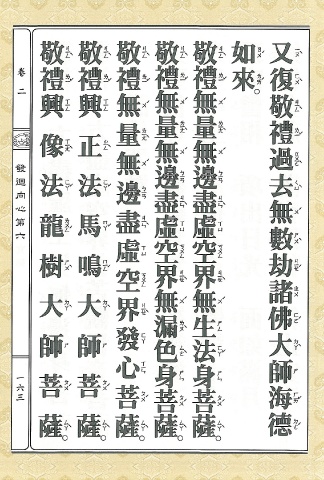 又復敬禮過去無數劫諸佛大師海德
如來。
敬禮無量無邊盡虛空界無生法身菩薩。
敬禮無量無邊盡虛空界無漏色身菩薩。
敬禮無量無邊盡虛空界發心菩薩。
敬禮興正法馬鳴大師菩薩。
敬禮興像法龍樹大師菩薩。
卷二
發迴向心第六
一六三